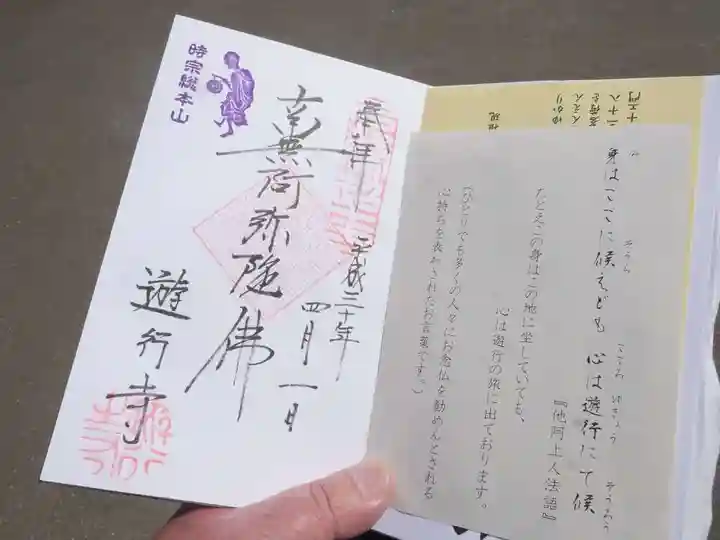 身はここに候えども 心は遊行にて候
み
そうら
こころ
ゆぎょう
そうろう
『他阿上人法語』
たとえこの身はこの地に坐していても、
心は遊行の旅に出ております。
(ひとりでも多くの人々にお念仏を勧めんとされる
心持ちを表わされたお言葉です。)
奉拝
平成三十年
四月一日
南無阿弥陀佛
遊行寺
時宗総本山